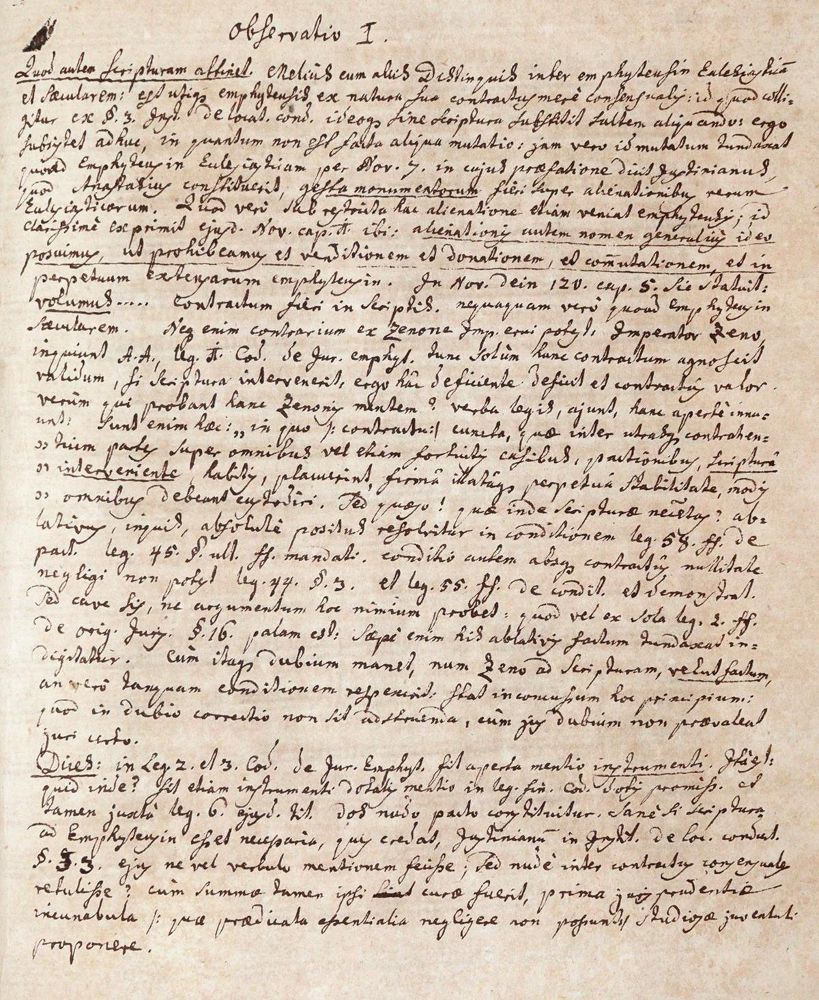 Observatio I.
Quod autem Scripturam attinet. Melius cum aliis Distinguis inter emphyteusin Eclesiasticã
et Sæcularem: est utiqȝ emphyteusis ex natura sua contractus merè consensualis: id quod colli-
gitur ex §. 3. Inst. De locat. cond. ideoqȝ sine Scriptura substitit saltem aliquando: ergo
subsistet adhuc, in quantum non est facta aliqua mutatio: jam vero id mutatum tundaxat
quoad Emphyteusin Eclesiasticam per Nov. 7. in cujus præfatione dicit Justinianus,
quod Anastasius constituerit, gesta monumentorum fieri super alienationibus rerum
Eclesiasticarum. Quod verò sub restricta hac alienatione etiam veniat emphyteusis; id
clarissimè exprimit ejusd. Nov. cap. 1. ibi: alienationis autem nomen generalius ideo
posuimus, ut prohibeamus et venditionem et donationem, et com̃utationem, et in
perpetuum extensarum emphyteusin. In Nov. dein 120. cap. 5. sic statuit:
volumus..... contractum fieri in Scriptis. nequaquam verò quoad Emphyteusin
Sæcularem. Neq enim contrarium ex Zenone Imp. erui potest. Imperator Zeno,
inquiunt A.A., leg. 1. Cod. de Jur. emphyt. tunc solùm hunc contractum agnoscit
validum, si Scriptura intervenerit, ergo hâc deficiente deficit et contractus valor.
verùm qui probant hanc Zenonis mentem? verba legis, ajunt, hanc apertè innu-
unt: Sunt enim hæc: „ in quo /: contractu:/ cuncta, quæ inter utrasqȝ contrahen-
„ tium partes super omnibus vel etiam fortuitis casibus, pactionibus, scripturâ
„ interveniente, habitis, placuerint, firmâ illatâqȝ perpetuâ stabilitate, modis
„ omnibus debeant custodiri. Sed quæso! quæ inde Scripturæ nec̃itas? ab-
lativus, inquis, absolutè positus resolvitur in conditionem leg. 58. ff. de
pact. leg. 45. §. ult. ff. mandati. conditio autem absqȝ contractus nullitate
negligi non potest leg. 44. §. 3. et leg. 55. ff. de condit. et demonstrat.
Sed cave sis, ne argumentum hoc nimium probet: quod vel ex sola leg. 2. ff.
de orig. Juris. §. 16. palam est: Sæpè enim his ablativis factum tundaxat in-
digitatur. Cùm itaqȝ dubium manet, num Zeno ad Scripturam, velut factum,
an verò tanquam conditionem respexerit: stat inconcussum hoc principium:
quod in dubio correctio non sit adstruenda, cùm jus dubium non prævaleat
juri certo.
Dices: in Leg. 2. et 3. Cod. de Jur. Emphyt. fit aperta mentio instrumenti. Ita est:
quid inde? fit etiam instrumenti dotalis mentio in leg. fin. Cod. Dotis promiss. et
tamen juxtà leg. 6. ejusd. tit. dos nudo pacto constituitur. Sanè si Scriptura
ad Emphyteusin esset necessaria, quis credat, Justinianum in Instit. de loc. conduct.
§. 3. ejus ne vel verbulo mentionem fecisse; sed nudè inter contractus consensuales
retulisse? cùm summæ tamen ipsi curæ fuerit, prima jurisprudentiæ
incunabula /: quæ prædicata essentialia negligere non possunt:/ studiosæ juventuti
proponere.